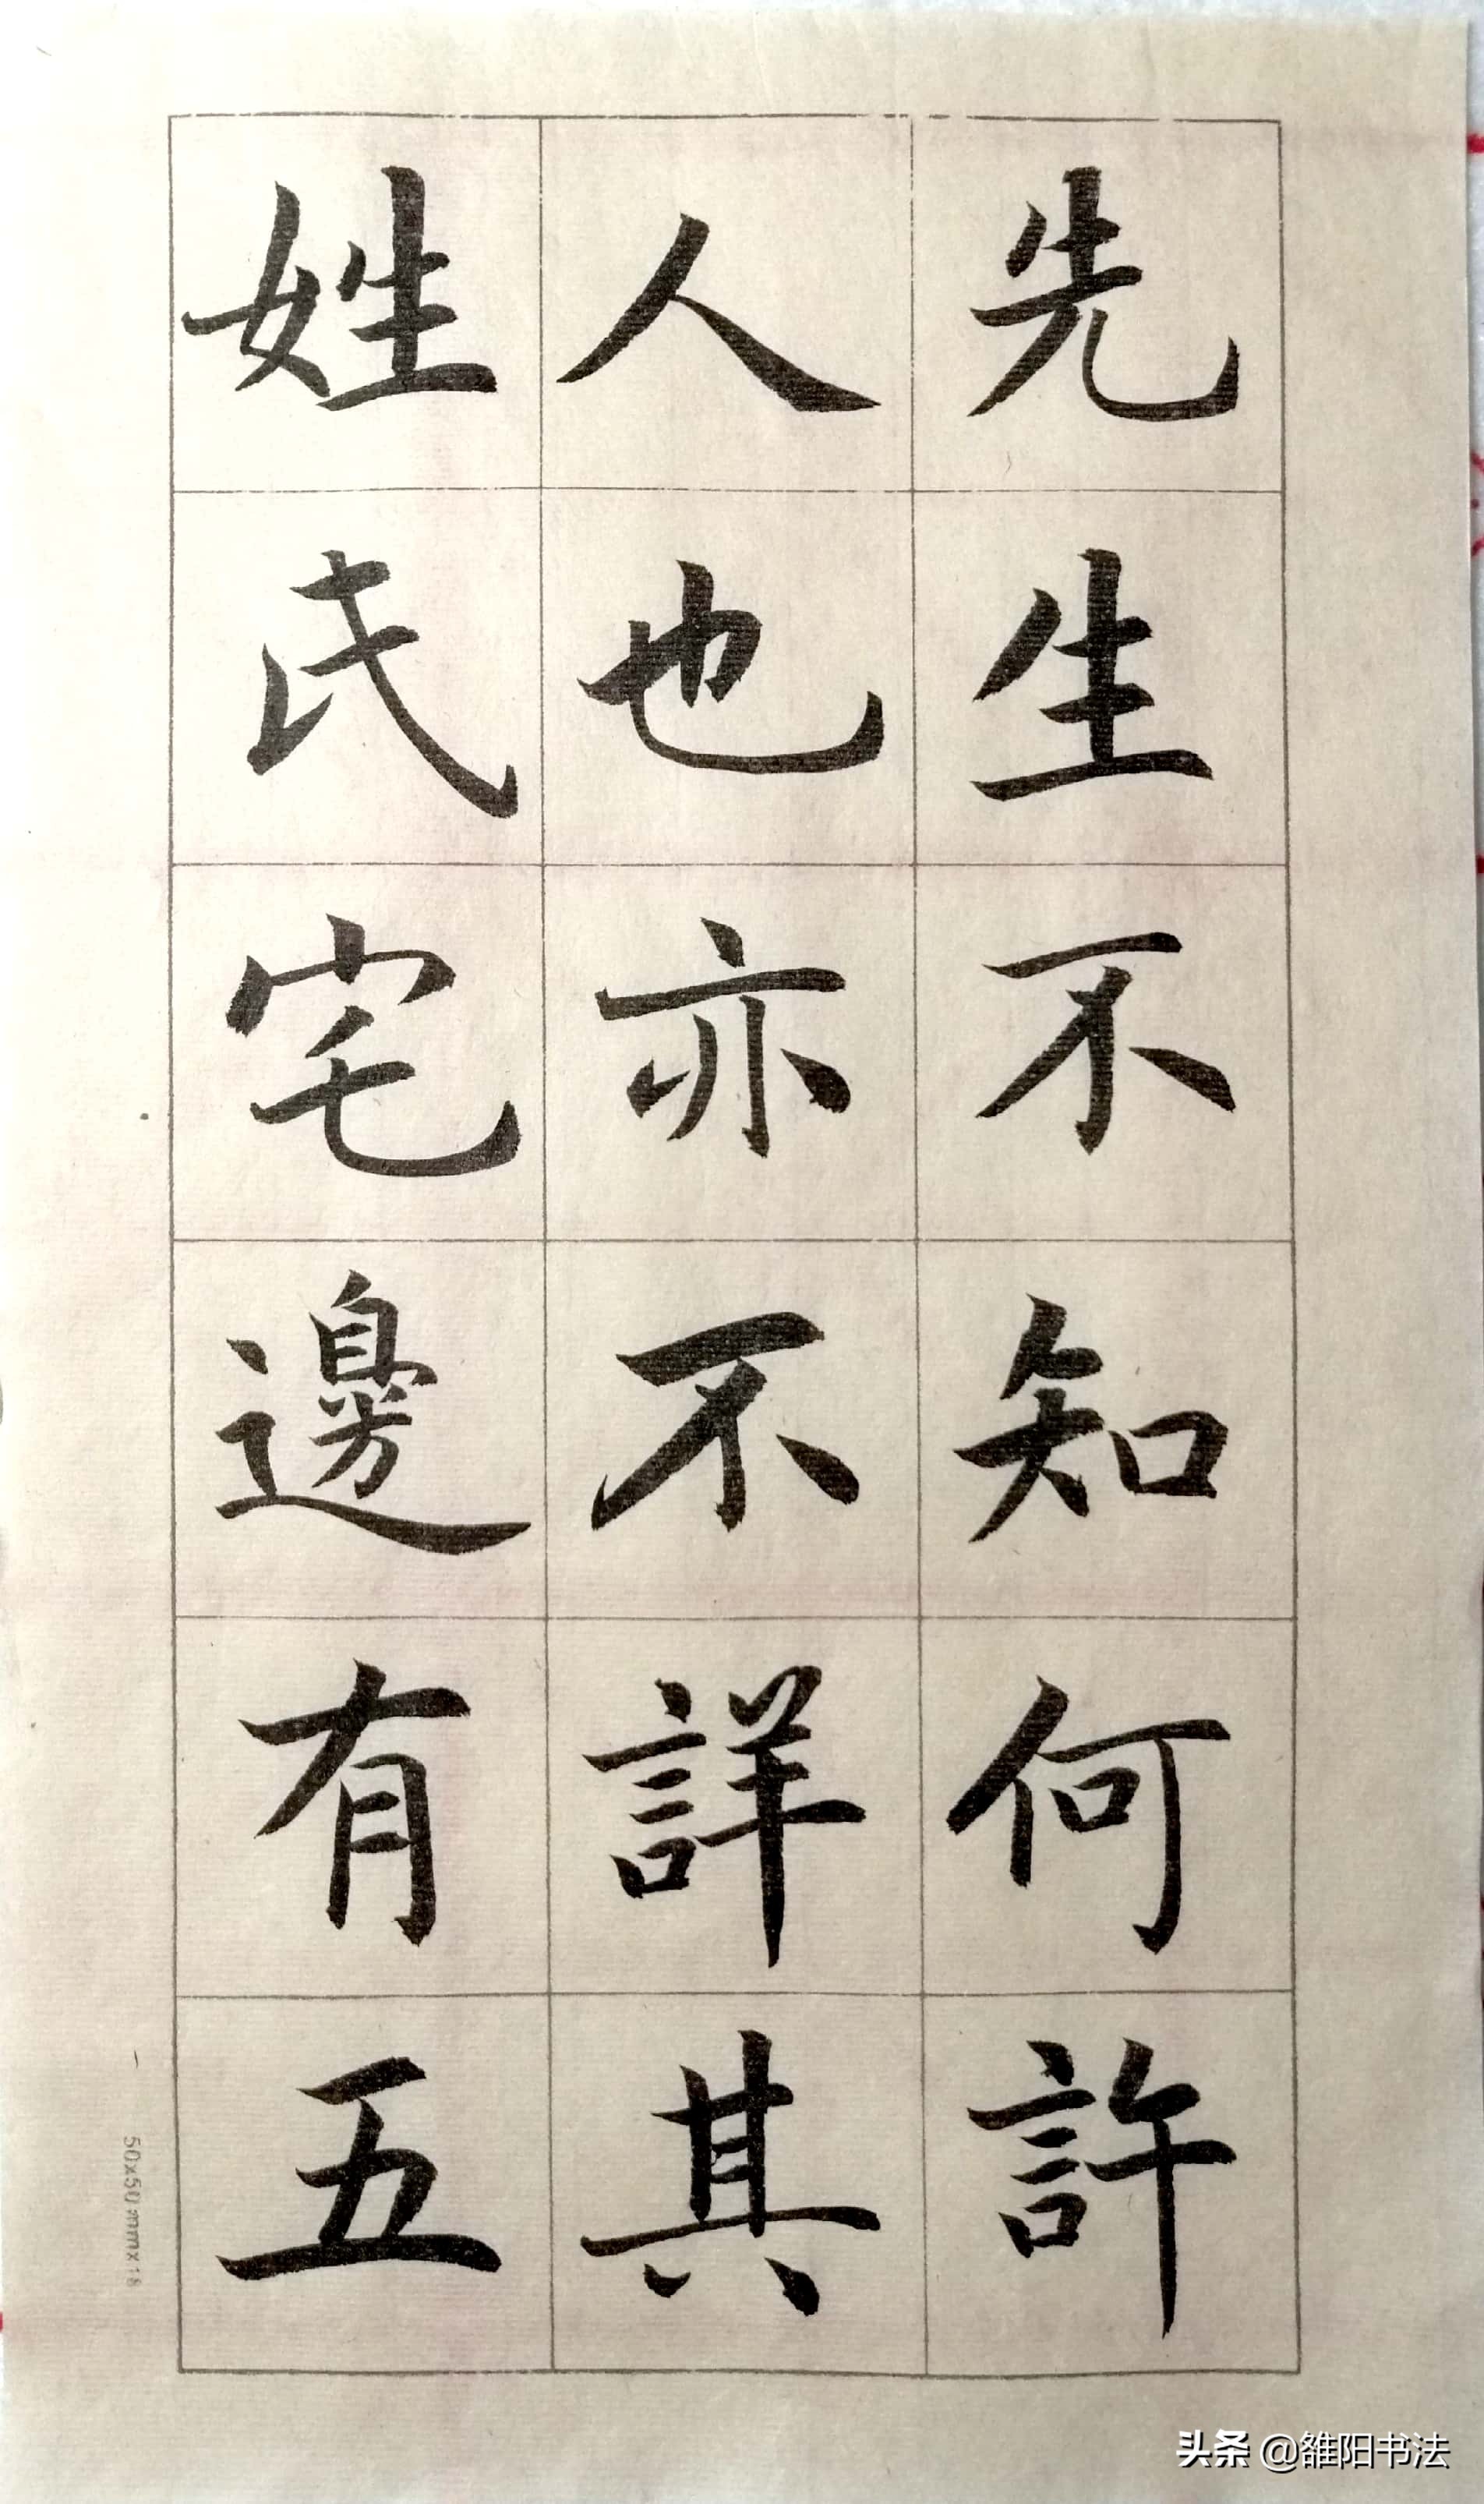 先生不知何許
人也亦不詳其
姓氏宅邊有五
50x50mmx18
头条 @雒阳书法